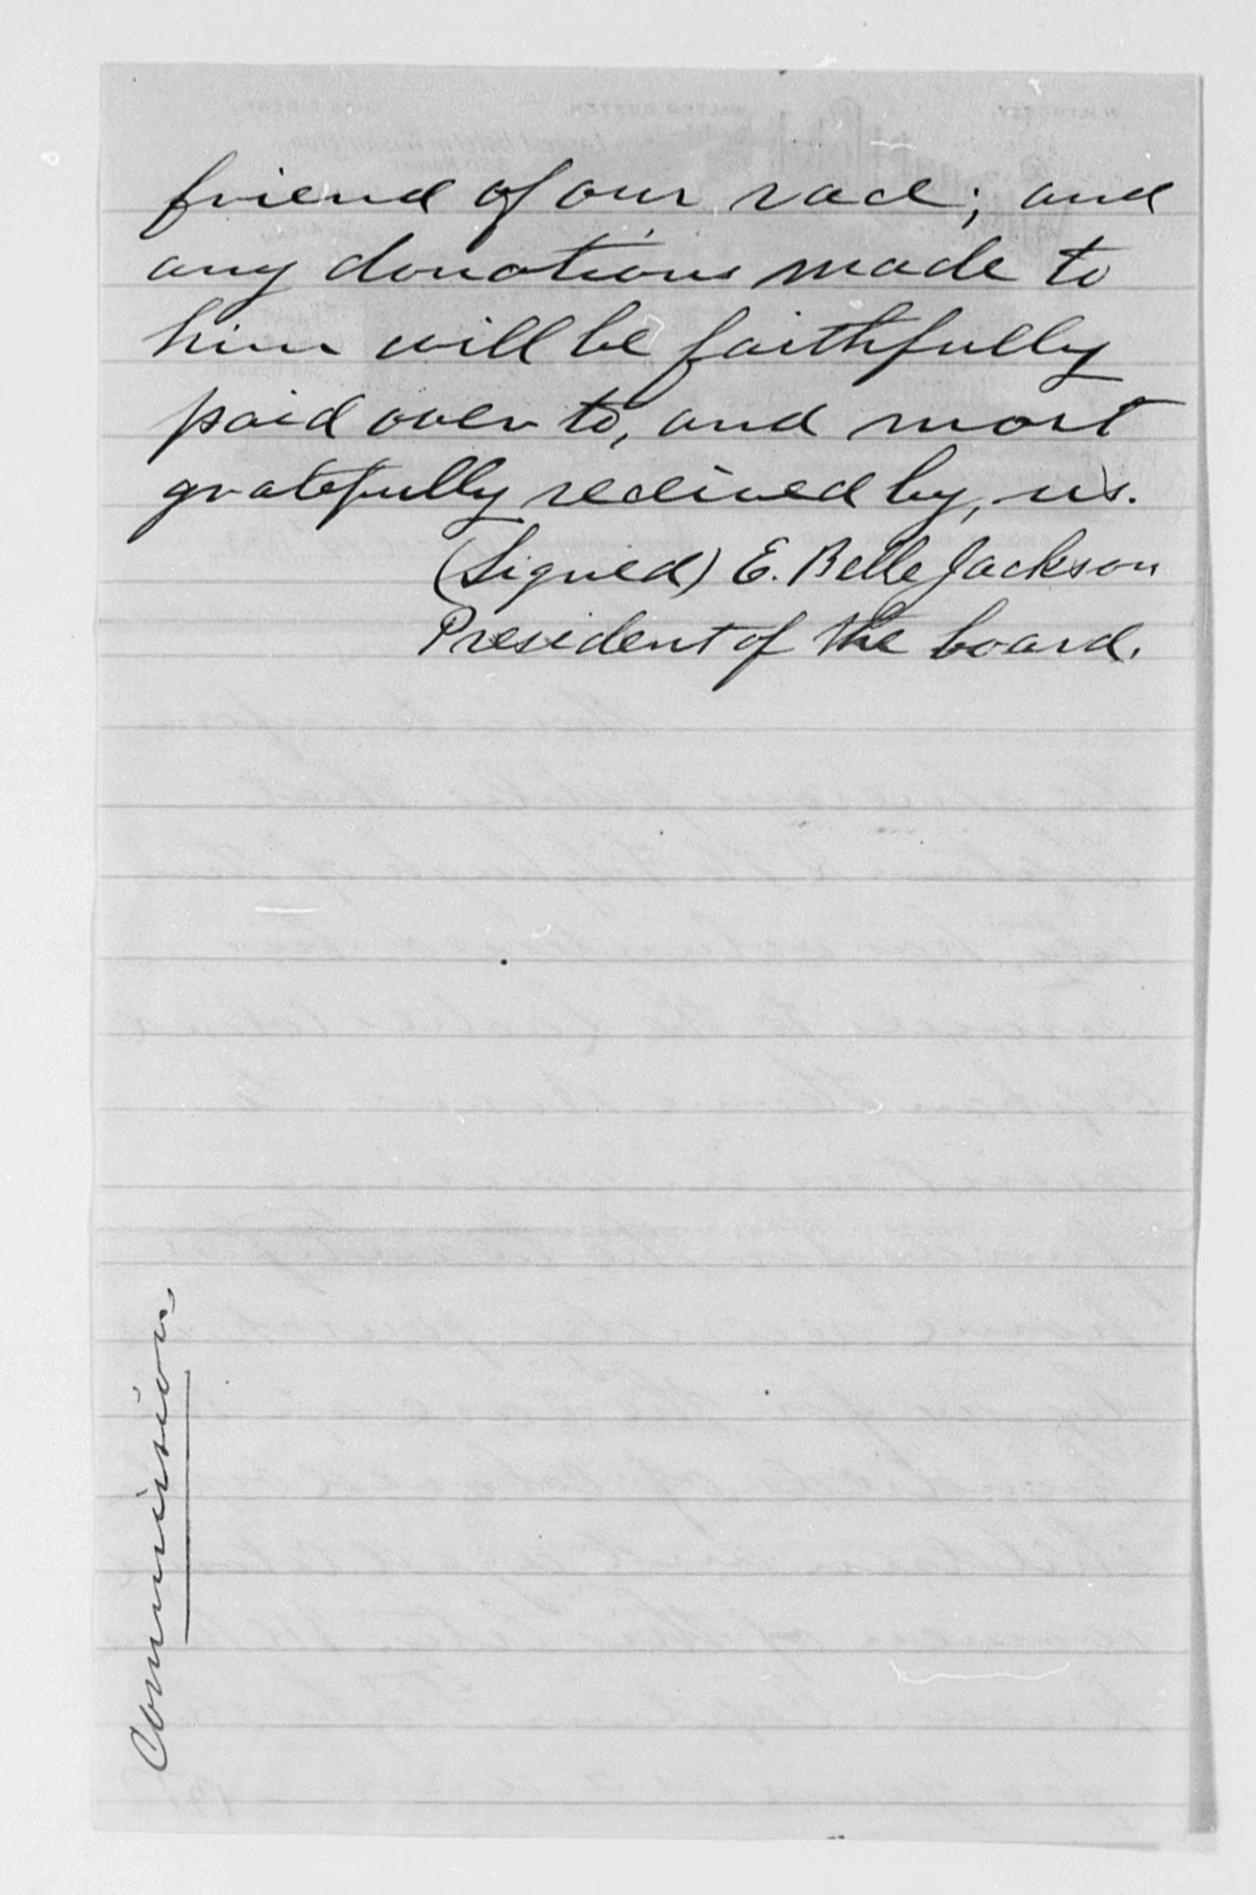 friend of our race; and
any donations made to
him will be faithfully
paid over to, and most
gratefully received by, us.
(Signed) E. Belle Jackson
President of the board.
Commission